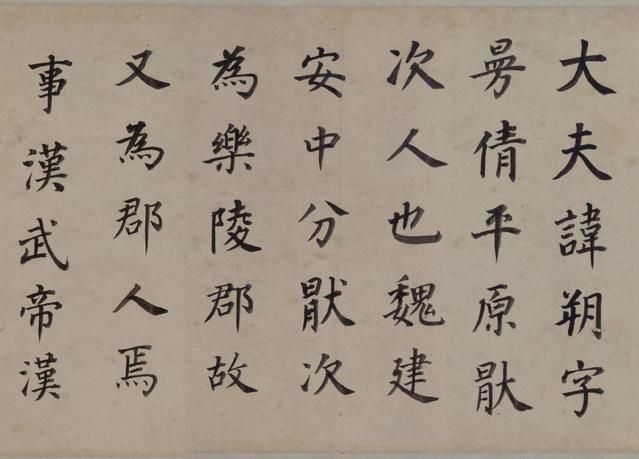 大夫諱朔字
曼倩平原猒
次人也魏建
安中分猒次
為樂陵郡故
又為郡人焉
事漢武帝漢